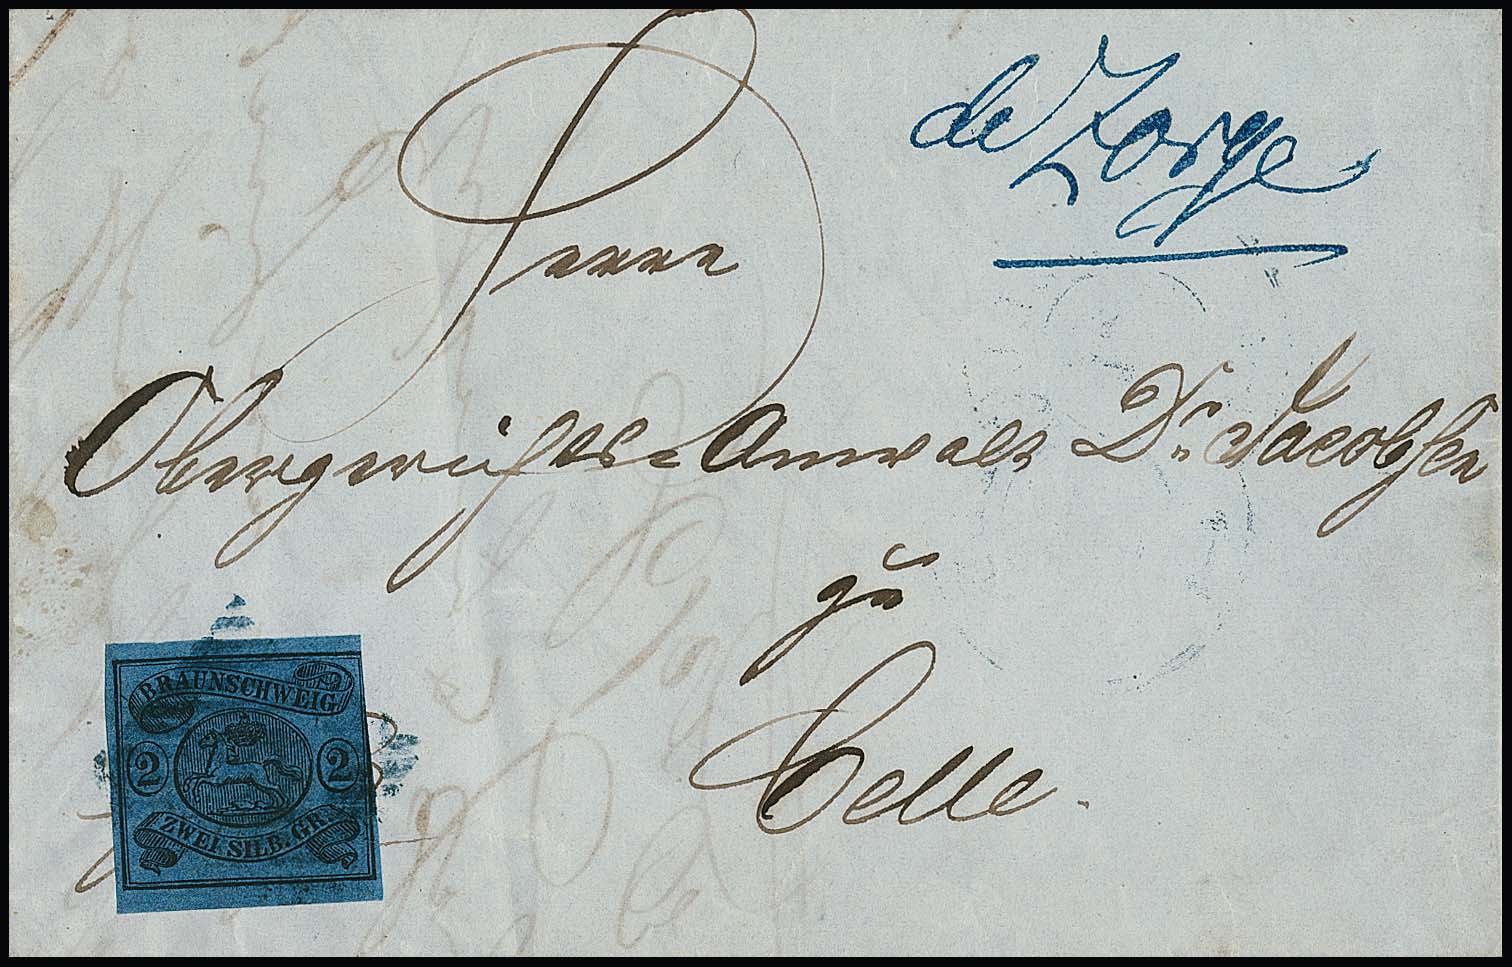 de Zorge
Herrn
Obergerichts-Anwalt Dr. Jacobsen
zu
Celle.
BRAUNSCHWEIG
2 2
ZWEI SILB. GR.